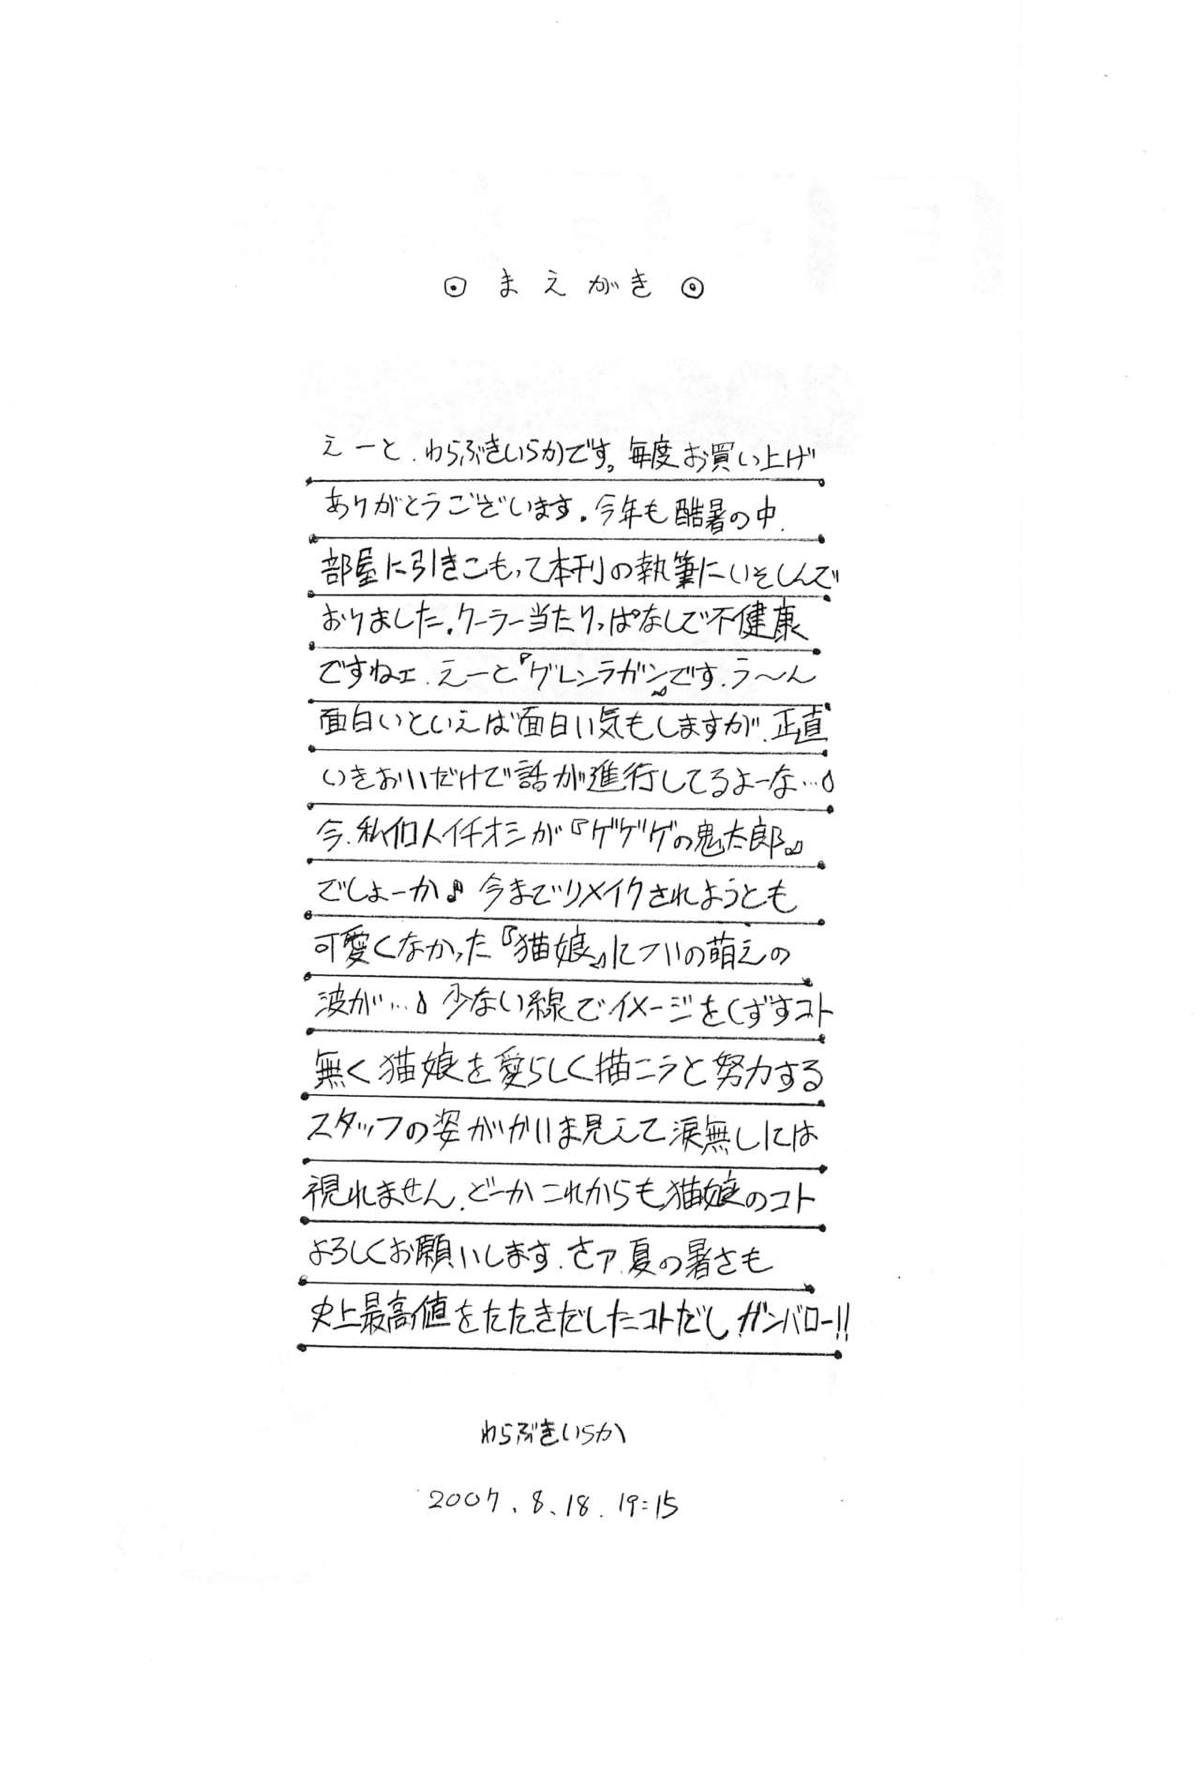 ◉ まえがき ◎
えーと、わらぶきいらかです。毎度お買い上げ
ありがとうございます。今年も酷暑の中、
部屋に引きこもって本刊の執筆にいそしんで
おりました。クーラー当たりっぱなしで不健康
ですねェ、えーと『グレンラガン』です、う〜ん
面白いといえば面白い気もしますが、正直
いきおいだけで話が進行してるよーな…
今、私個人イチオシが『ゲゲゲの鬼太郎』
でしょーか♪ 今までリメイクされようとも
可愛くなかった『猫娘』についの萌えの
波が… 少ない線でイメージをくずすコト
無く猫娘を愛らしく描こうと努力する
スタッフの姿がかいま見えて涙無しには
視れません、どーかこれからも猫娘のコト
よろしくお願いします、さァ、夏の暑さも
史上最高値をたたきだしたコトだしガンバロー!!
わらぶきいらか
2007、8、18、19:15